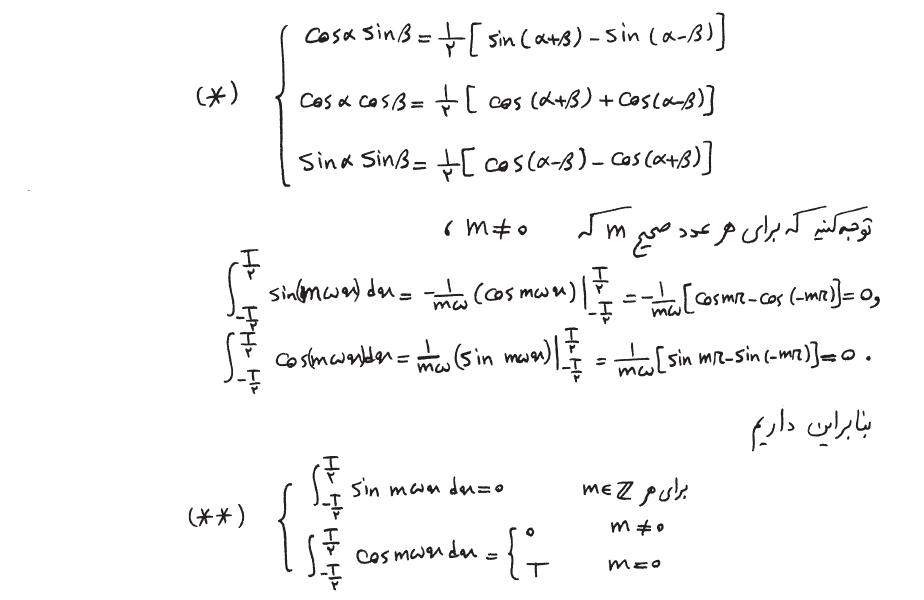 cosα sinβ = ۱/۲ [ sin(α+β) - sin(α-β)]
(*) cosα cosβ = ۱/۲ [ cos(α+β) + cos(α-β)]
sinα sinβ = ۱/۲ [ cos(α-β) - cos(α+β)]
توجه کنید که برای هر عدد صحیح m که m ≠ 0 ،
∫_{-T/۲}^{T/۲} sin(mωx) dx = -1/mω (cos mωx)|_{-T/۲}^{T/۲} = -1/mω [cos mπ - cos(-mπ)] = 0,
∫_{-T/۲}^{T/۲} cos(mωx) dx = 1/mω (sin mωx)|_{-T/۲}^{T/۲} = 1/mω [sin mπ - sin(-mπ)] = 0.
بنابراین داریم
∫_{-T/۲}^{T/۲} sin mωx dx = 0 برای هر m ∈ ℤ
(**) ∫_{-T/۲}^{T/۲} cos mωx dx = { 0 m ≠ 0
T m = 0